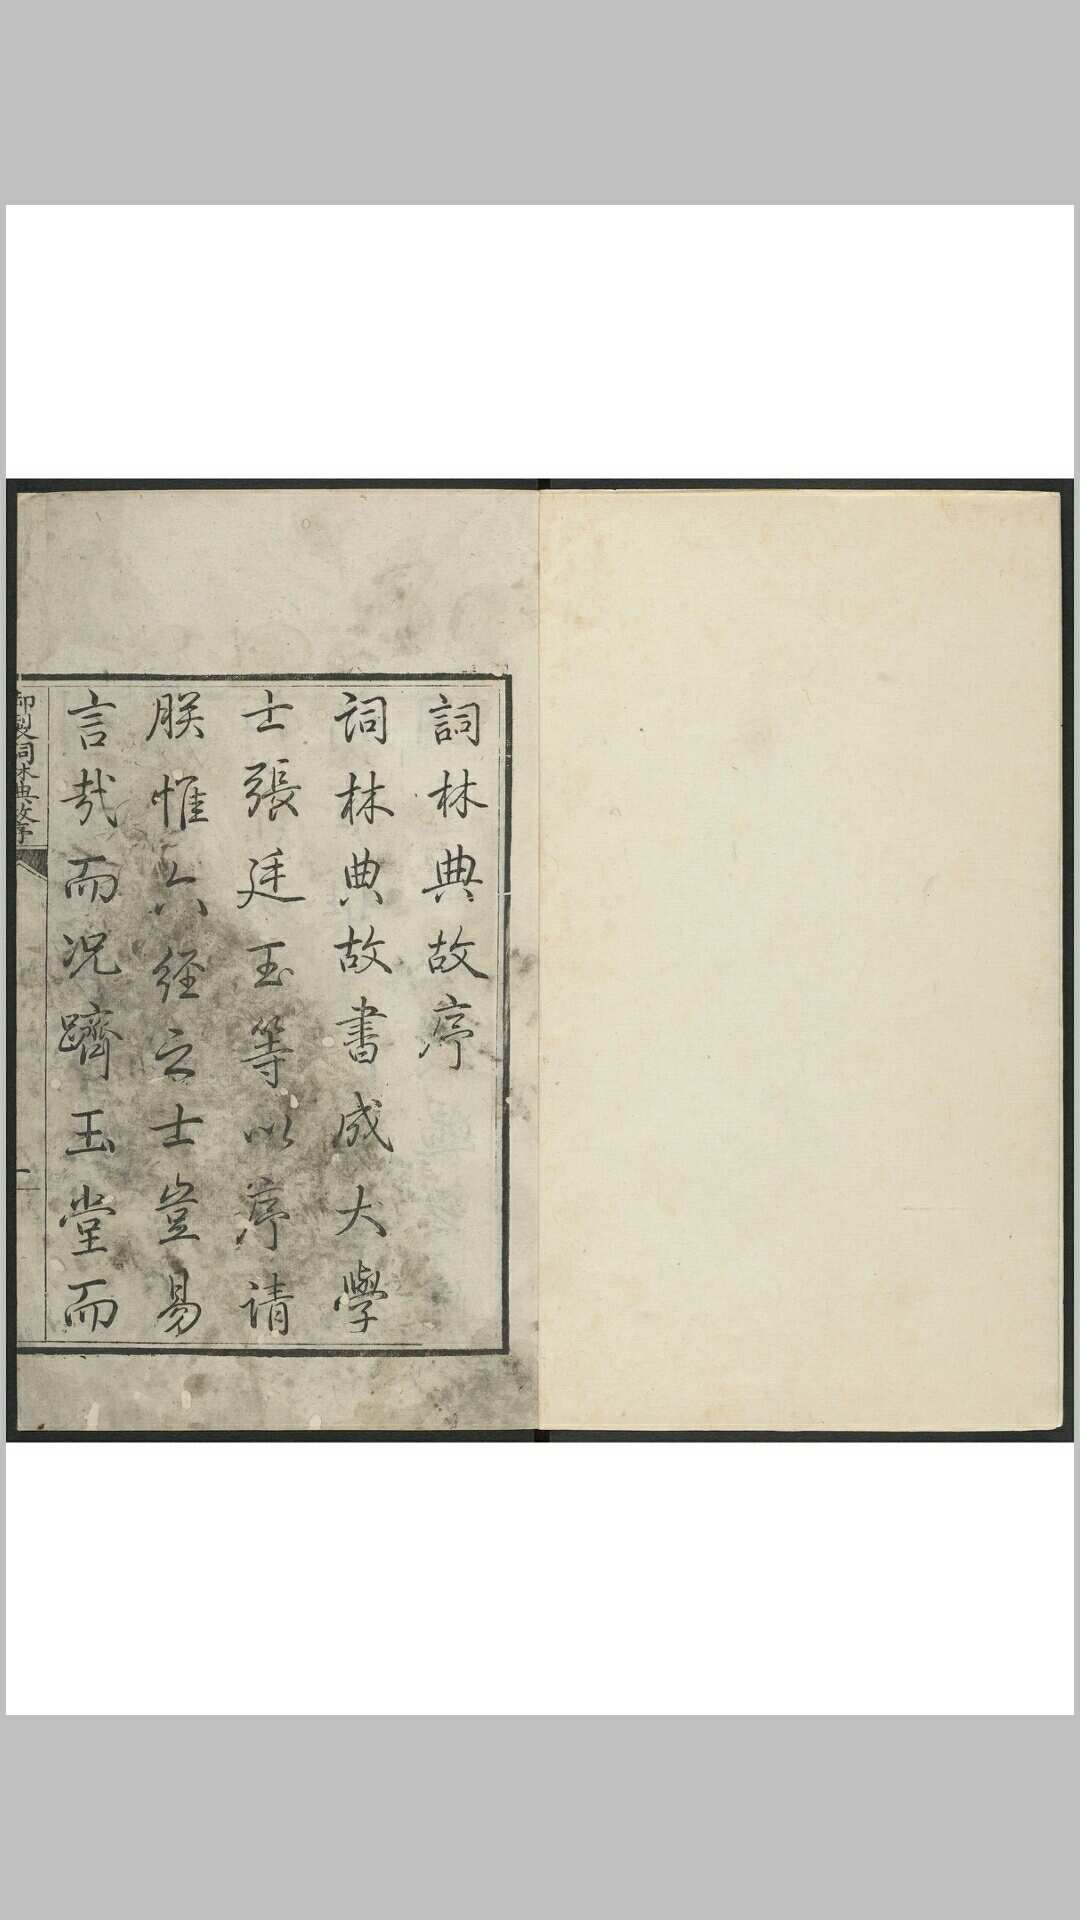 詞林典故序
詞林典故書成大學
士張廷玉等以序請
朕惟六經之士豈易
言哉而况躋玉堂而
御製詞林典故序